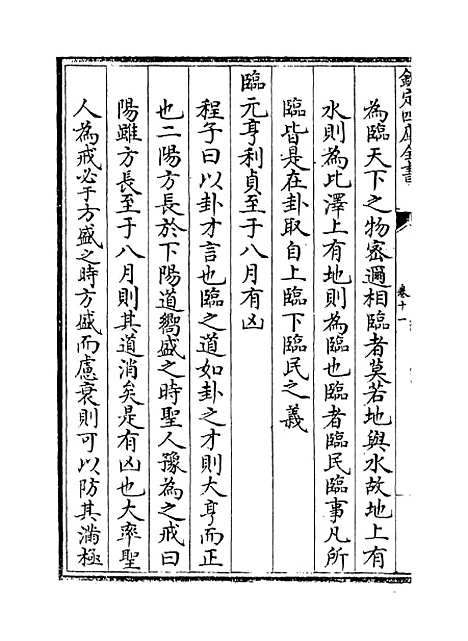 欽定四庫全書
卷十一
為臨天下之物密邇相臨者莫若地與水故地上有
水則為比澤上有地則為臨也臨者臨民臨事凡所
臨皆是在卦取自上臨下臨民之義
臨元亨利貞至于八月有凶
程子曰以卦才言也臨之道如卦之才則大亨而正
也二陽方長於下陽道嚮盛之時聖人豫為之戒曰
陽雖方長至于八月則其道消矣是有凶也大率聖
人為戒必于方盛之時方盛而慮衰則可以防其滿極